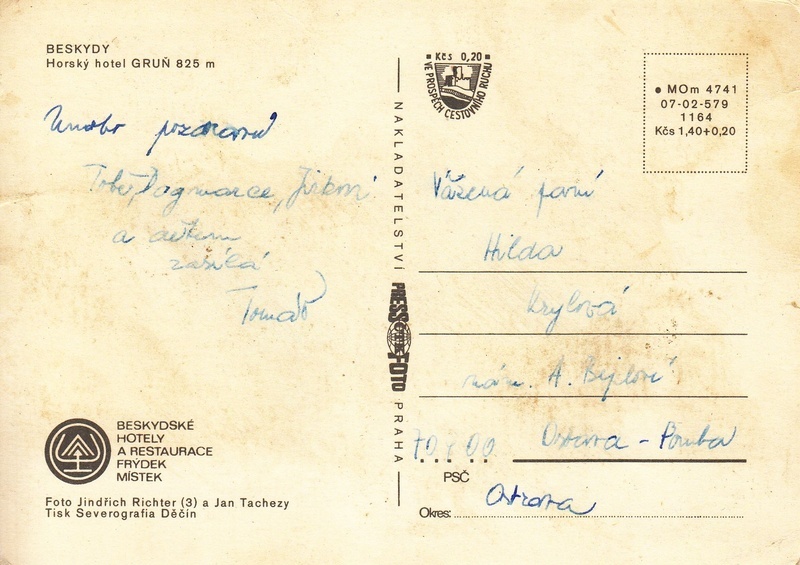 BESKYDY
Horský hotel GRUŇ 825 m
Mnoho pozdravů
Tobě, Dagmarce, Jirkovi
a dětem
zasílá
Tomáš
BESKYDSKÉ
HOTELY
A RESTAURACE
FRÝDEK
MÍSTEK
Foto Jindřich Richter (3) a Jan Tachezy
Tisk Severografia Děčín
NAKLADATELSTVÍ PRESSFOTO PRAHA
Kčs 0,20
VE PROSPĚCH CESTOVNÍHO RUCHU
MOm 4741
07-02-579
1164
Kčs 1,40+0,20
Vážená paní
Hilda
Krylová
nám. A. Bejdové
70 00 Ostrava - Poruba
PSČ
Ostrava
Okres: